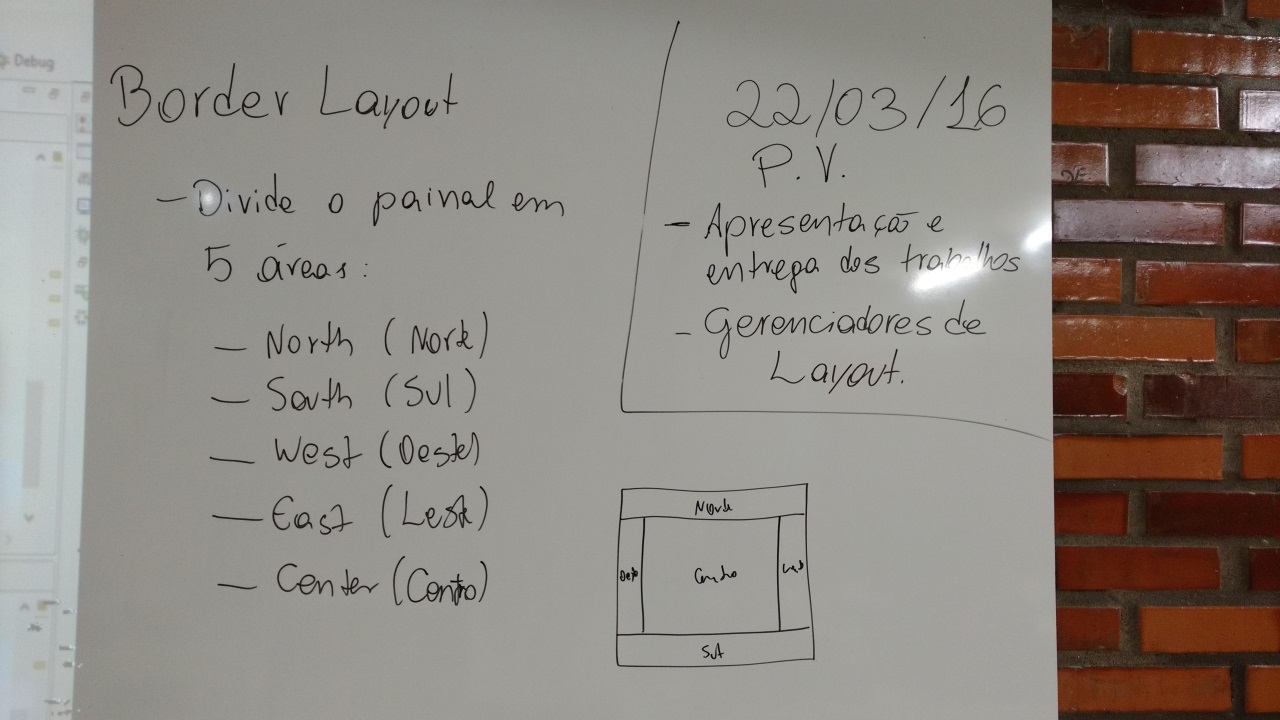 Debug
Border Layout
- Divide o painal em
5 áreas:
- North (Norte)
- South (Sul)
- West (Oeste)
- East (Leste)
- Center (Centro)
22/03/16
P.V.
- Apresentação e
entrega dos trabalhos
- Gerenciadores de
Layout.
Norte
Oeste
Centro
Leste
Sul